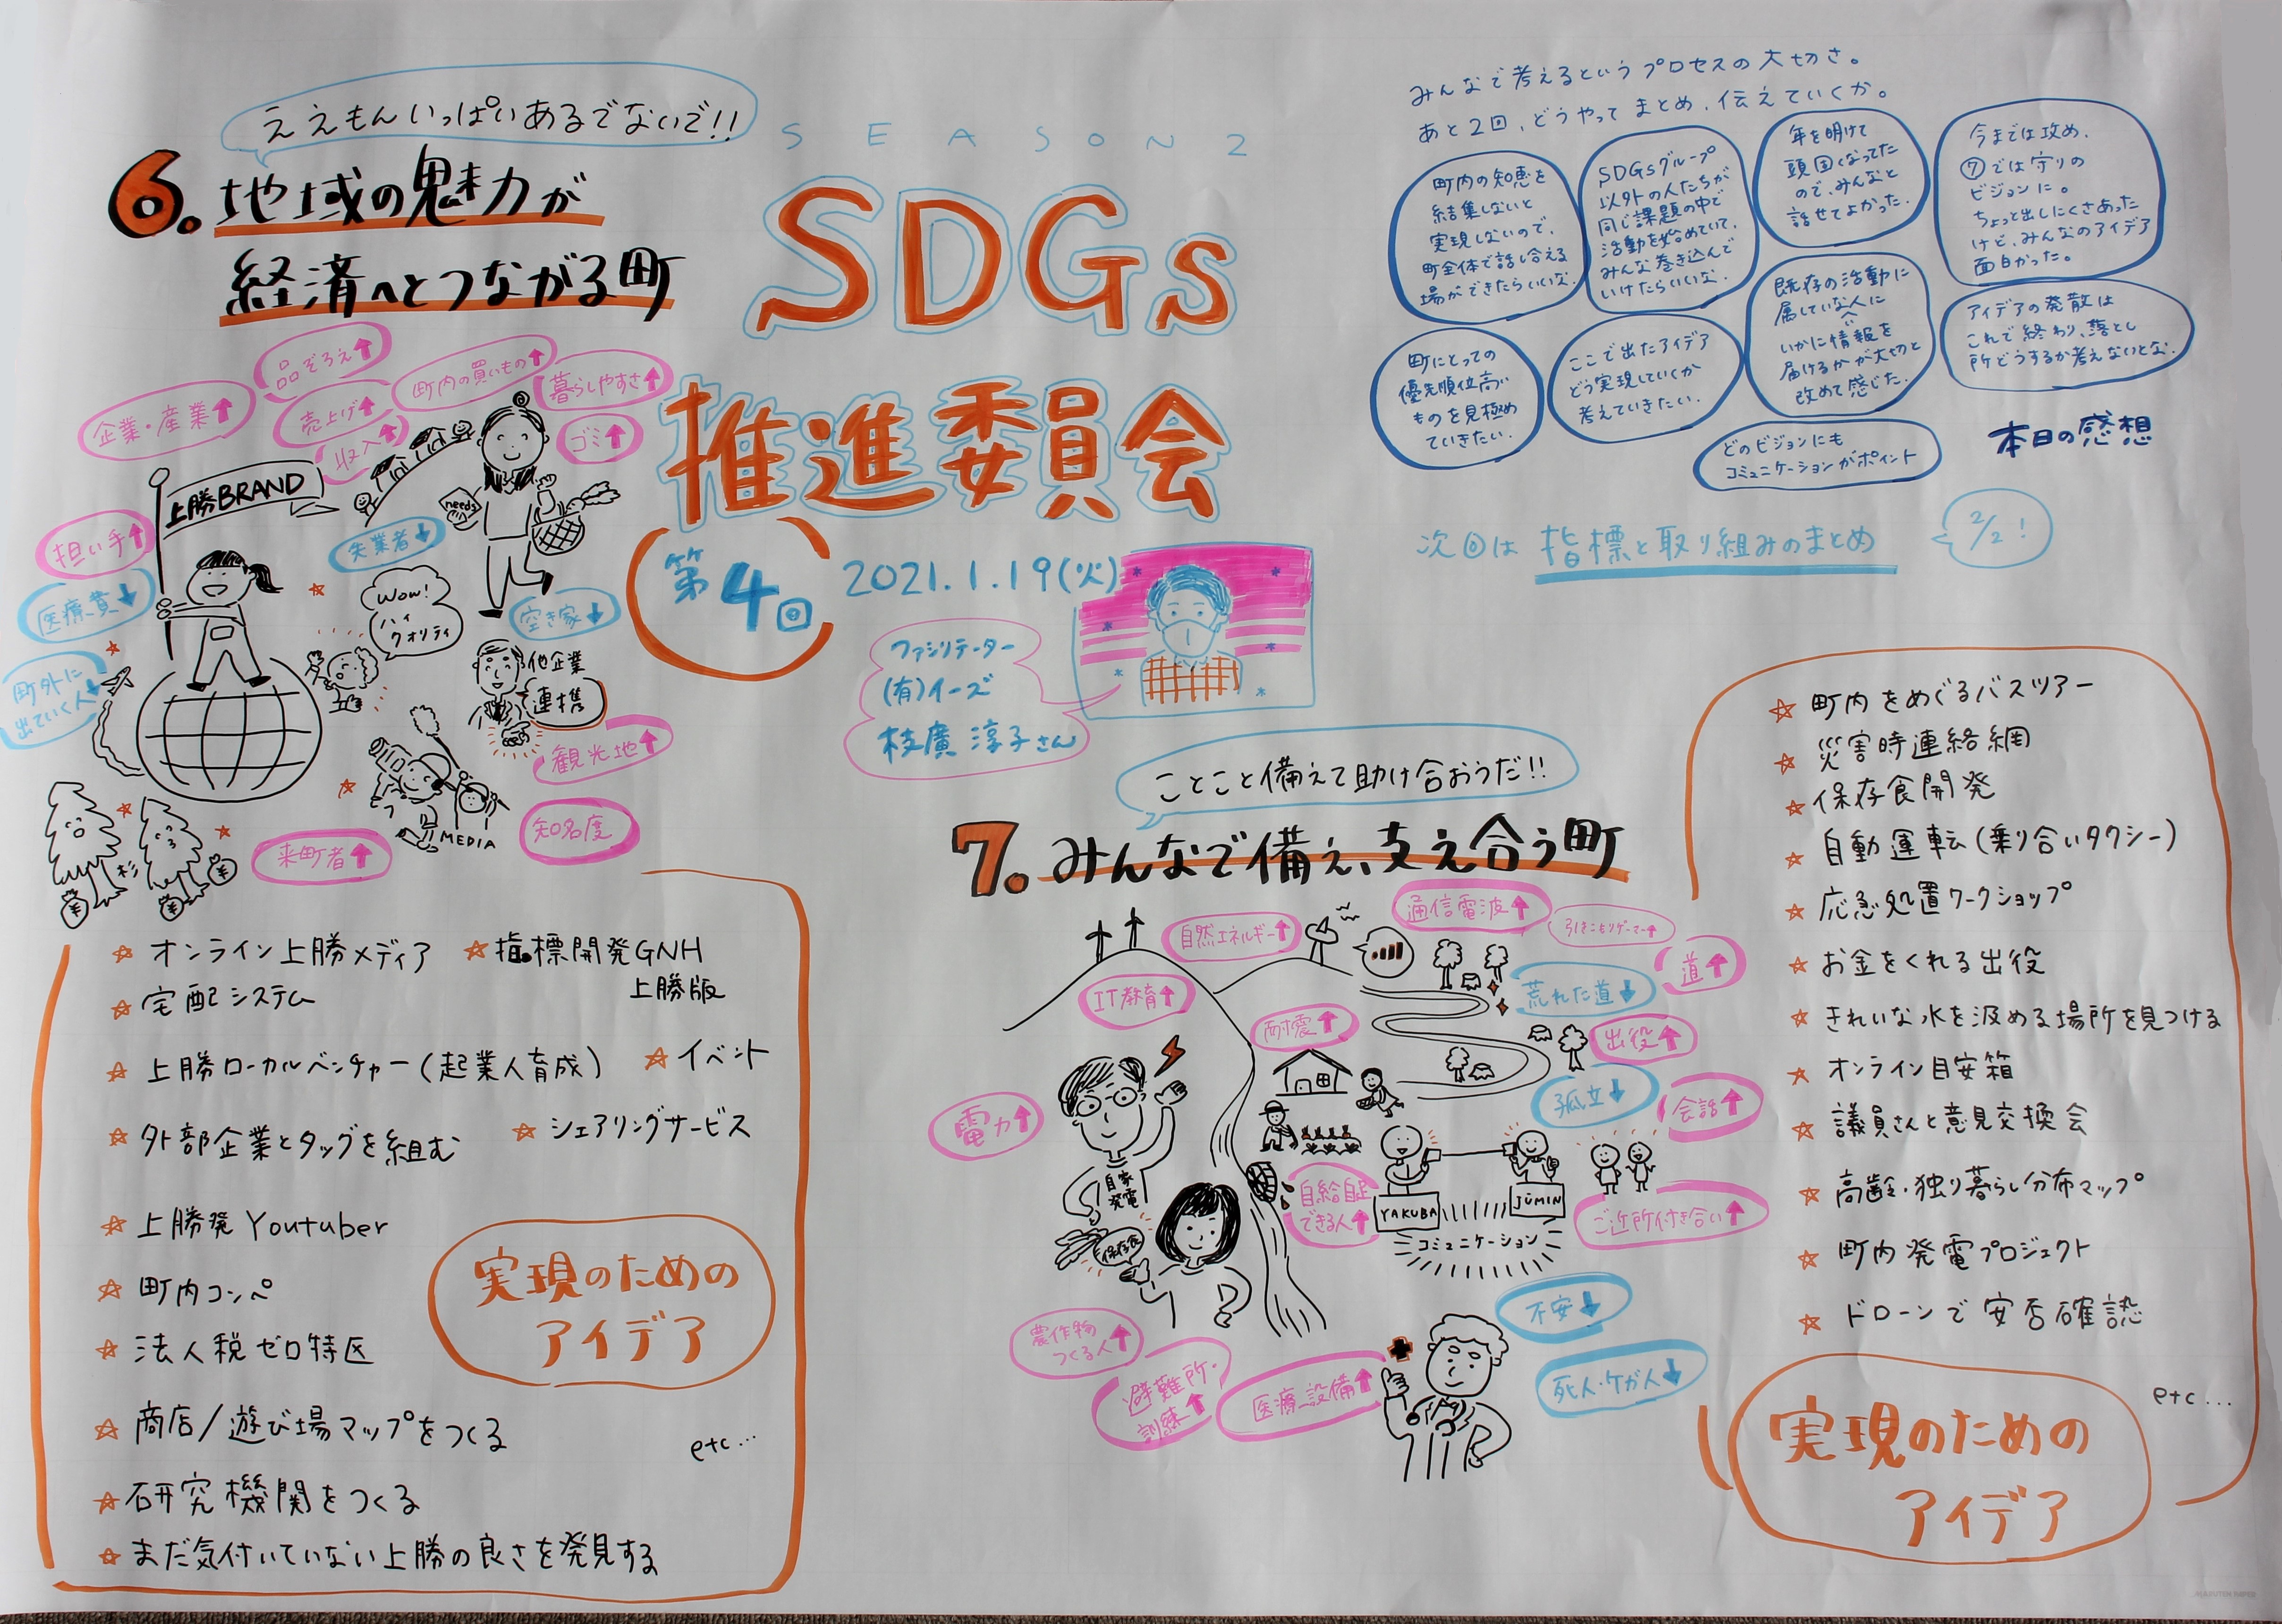 ええもんいっぱいあるでないで!!
6. 地域の魅力が
経済へとつながる町
SEASON 2
SDGs
推進委員会
第4回
2021.1.19(火)
ファシリテーター
(有)イーズ
枝廣 淳子さん
みんなで考えるというプロセスの大切さ。
あと2回、どうやってまとめ、伝えていくか。
町内の知恵を
結集しないと
実現しないので、
町全体で話し合える
場ができたらいいな。
SDGsグループ
以外の人たちが
同じ課題の中で
活動を始めていて、
みんな巻き込んで
いけたらいいな。
年を明けて
頭固くなってた
ので、みんなと
話せてよかった。
今までは攻め、
⑦では守りの
ビジョンに。
ちょっと出しにくさあった
けど、みんなのアイデア
面白かった。
町にとっての
優先順位高い
ものを見極め
ていきたい。
ここで出たアイデア
どう実現していくか
考えていきたい。
既存の活動に
属していない人に
いかに情報を
届けるかが大切と
改めて感じた。
アイデアの発散は
これで終わり、落とし
所どうするか考えないとな。
どのビジョンにも
コミュニケーションがポイント
本日の感想
次回は 指標と取り組みのまとめ
2/2!
企業・産業↑
品ぞろえ↑
売上げ↑
収入↑
町内の買いもの↑
暮らしやすさ↑
ゴミ↑
上勝BRAND
needs
担い手↑
失業者↓
医療費↓
空き家↓
Wow!
ハイ
クオリティ
町外に
出ていく人↓
他企業
連携
観光地↑
MEDIA
知名度
来町者↑
杉
¥
¥
¥
☆ オンライン上勝メディア
☆ 指標開発GNH
上勝版
☆ 宅配システム
☆ 上勝ローカルベンチャー(起業人育成)
☆ イベント
☆ 外部企業とタッグを組む
☆ シェアリングサービス
☆ 上勝発Youtuber
☆ 町内コンペ
☆ 法人税ゼロ特区
☆ 商店/遊び場マップをつくる
☆ 研究機関をつくる
☆ まだ気付いていない上勝の良さを発見する
etc…
実現のための
アイデア
ことこと備えて助け合おうだ!!
7. みんなで備え、支え合う町
自然エネルギー↑
通信電波↑
引きこもりゲーマー↑
道↑
IT教育↑
荒れた道↓
耐震↑
出役↑
孤立↓
会話↑
電力↑
自家
発電
保存食
自給自足
できる人↑
YAKUBA
JŪMIN
コミュニケーション
ご近所付き合い↑
農作物
つくる人↑
避難所・
訓練↑
医療設備↑
不安↓
死人・ケガ人↓
☆ 町内をめぐるバスツアー
☆ 災害時連絡網
☆ 保存食開発
☆ 自動運転(乗り合いタクシー)
☆ 応急処置ワークショップ
☆ お金をくれる出役
☆ きれいな水を汲める場所を見つける
☆ オンライン目安箱
☆ 議員さんと意見交換会
☆ 高齢・独り暮らし分布マップ
☆ 町内発電プロジェクト
☆ ドローンで安否確認
etc…
実現のための
アイデア